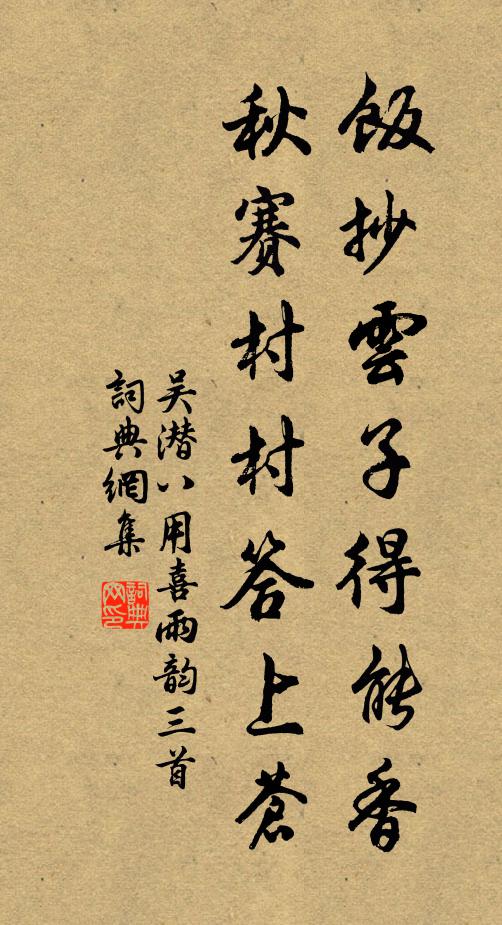 飯抄雲子得能香
秋賽村村答上蒼
吴潜八用喜雨韵三首
詞典網集
詞典網印